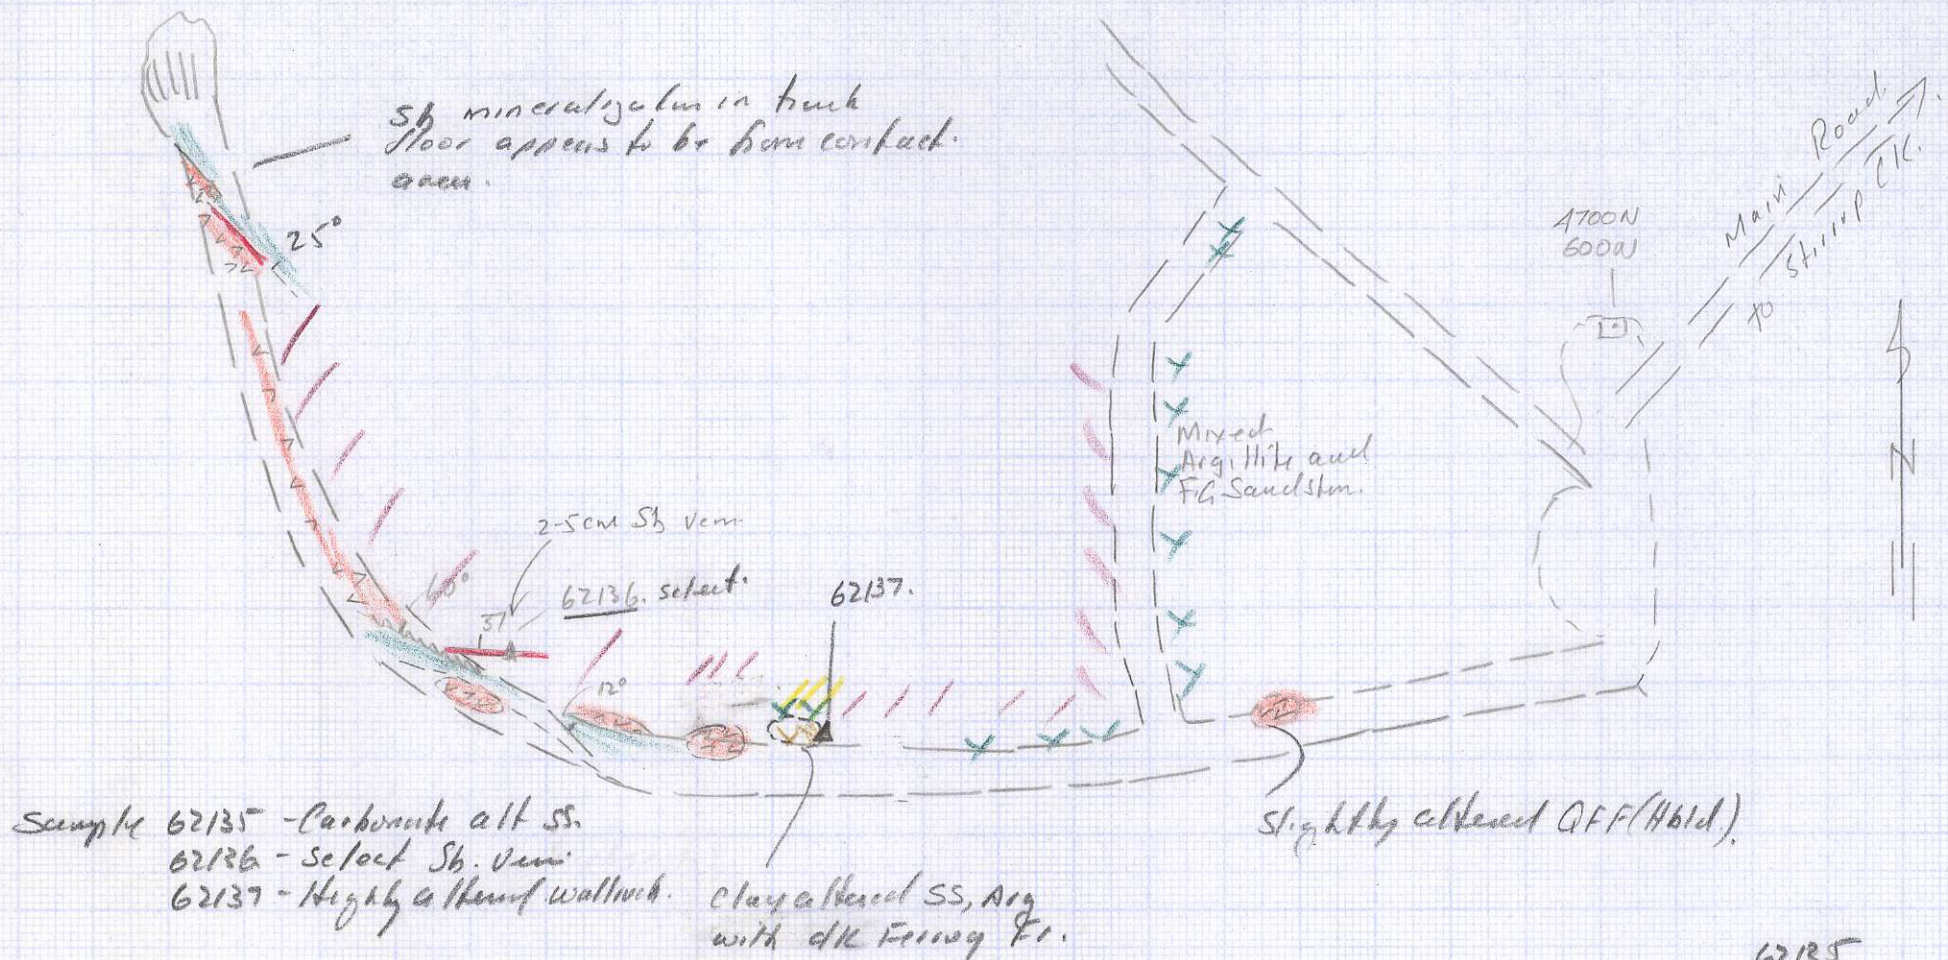 Sb mineralization in track
floor appears to be from contact.
area.
25°
Main Road
to Stirrup CK.
4700N
600W
N
Mixed
Argillite and
F.G Sandston.
2-5cm Sb vein
60°
62136. select.
62137.
12°
Sample 62135 - Carbonate alt SS.
62136 - Select Sb. Vein
62137 - Highly altered wallrock.
Clay altered SS, Arg
with dk Fr.
Slightly altered QFF (Hbld).
62135